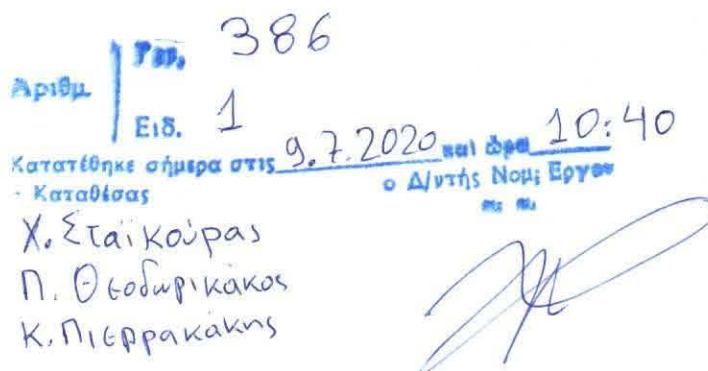 Αριθμ. Γεν. 386
Ειδ. 1
Κατατέθηκε σήμερα στις 9.7.2020 και ώρα 10:40
- Καταθέσας ο Δ/ντής Νομ. Έργου
Χ. Σταϊκούρας
Π. Θεοδωρικάκος
Κ. Πιερρακάκης